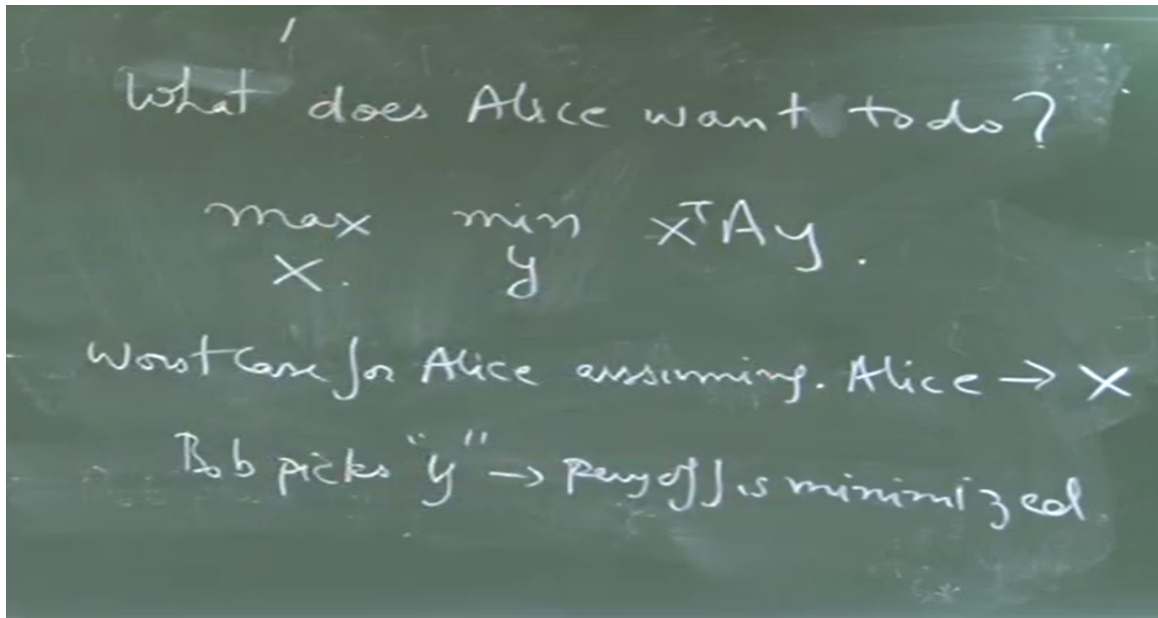 What does Alice want to do?
max min xᵀAy.
x. y
Worst case for Alice assuming. Alice → x
Bob picks "y" → Payoff is minimized